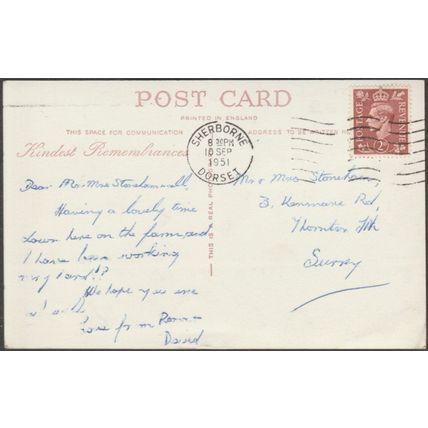 POST CARD
PRINTED IN ENGLAND
THIS SPACE FOR COMMUNICATION
ADDRESS TO BE WRITTEN HERE
Kindest Remembrances
SHERBORNE
8 30PM
10 SEP
1951
DORSET
POSTAGE
REVENUE
2D
THIS IS A REAL PHO
Dear Mr & Mrs
Having a lovely time
down here on the farm, and
I have been working
very hard!!?
We hope you are
Love from
David
Mr & Mrs Stoneham,
3, Kenmare Rd,
Thornton Hth
Surrey